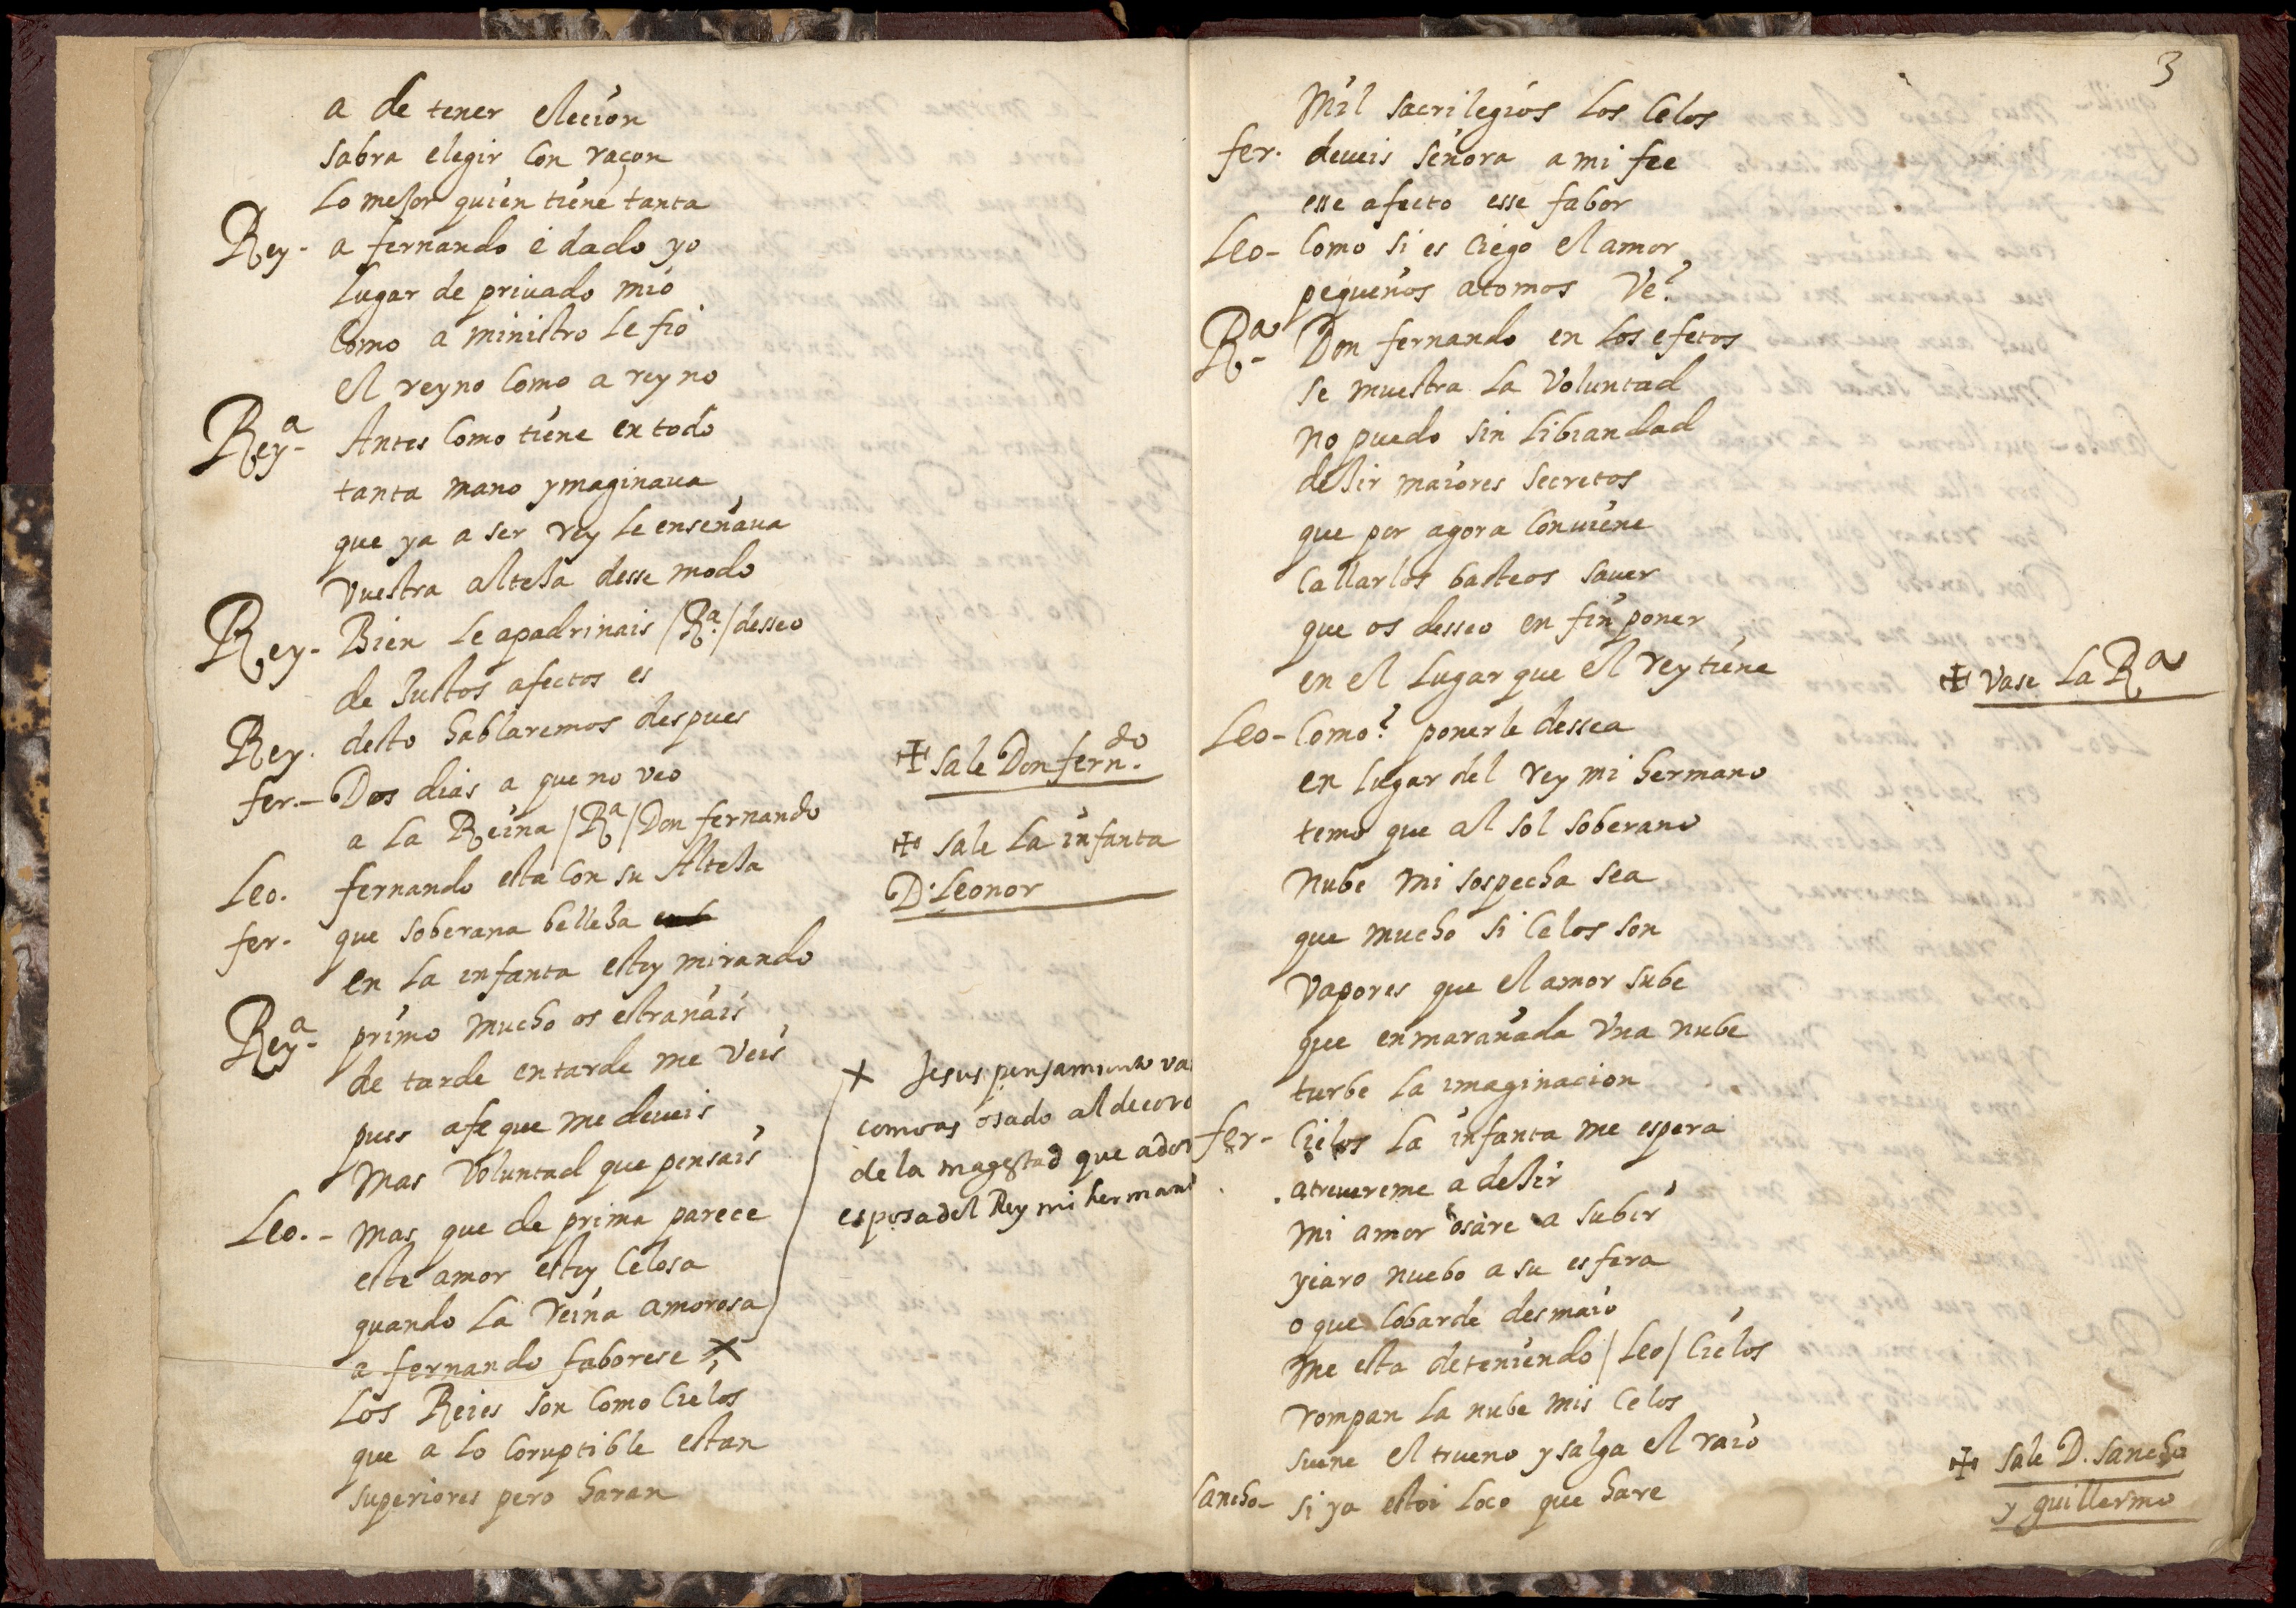 a de tener elecion
sabra elegir con raçon
lo mejor quien tiene tanta
Rey - a fernando è dado yo
lugar de priuado mio
como a ministro le fio
el reyno como a reyno
Reyª - Antes como tiene en todo
tanta mano ymaginaua
que ya a ser rey le enseñaua
Vuestra alteza desse modo
Rey - Bien le apadrinais /Rª/ desseo
de Justos afectos es
Rey. desto hablaremos despues
✠ sale Don fern.do
fer. - Dos dias a que no veo
a la Reina /Rª/ Don fernando
✠ sale la infanta
D. Leonor
Leo. fernando esta con su Alteza
fer. que soberana belleza
en la infanta estoy mirando
Reyª - primo mucho os estrañais
de tarde en tarde me veis
pues a fe que me deueis
mas voluntad que pensais
Leo. - mas que de prima parece
este amor estoy celosa
quando la reina amorosa
a fernando faborese X
X Jesus pensamiento va
como as osado al decoro
de la magestad que ador
esposa del Rey mi herman
los Reies son como cielos
que a lo coruptible estan
superiores pero haran
3
Mil sacrilegios los celos
fer. deueis señora a mi fee
esse afecto esse fabor
Leo - Como si es ciego el amor
pequeños atomos Ve?
Rª - Don fernando en los efetos
se muestra la voluntad
no puedo sin libiandad
dezir maiores secretos
que por agora conuiene
callarlos basteos sauer
que os desseo en fin poner
en el lugar que el rey tiene
✠ vase la Rª
Leo - Como? ponerle dessea
en lugar del rey mi hermano
temo que al sol soberano
nube mi sospecha sea
que mucho si celos son
vapores que el amor sube
que enmarañada vna nube
turbe la imaginacion
fer - Cielos la infanta me espera
atreuereme a dezir
mi amor osare a subir
yiaro nuebo a su esfera
o que cobarde desmaio
me esta deteniendo /Leo/ Cielos
rompan la nube mis celos
suene el trueno y salga el raio
✠ sale D. Sancho
y guillermo
Sancho - si ya estoi loco que hare